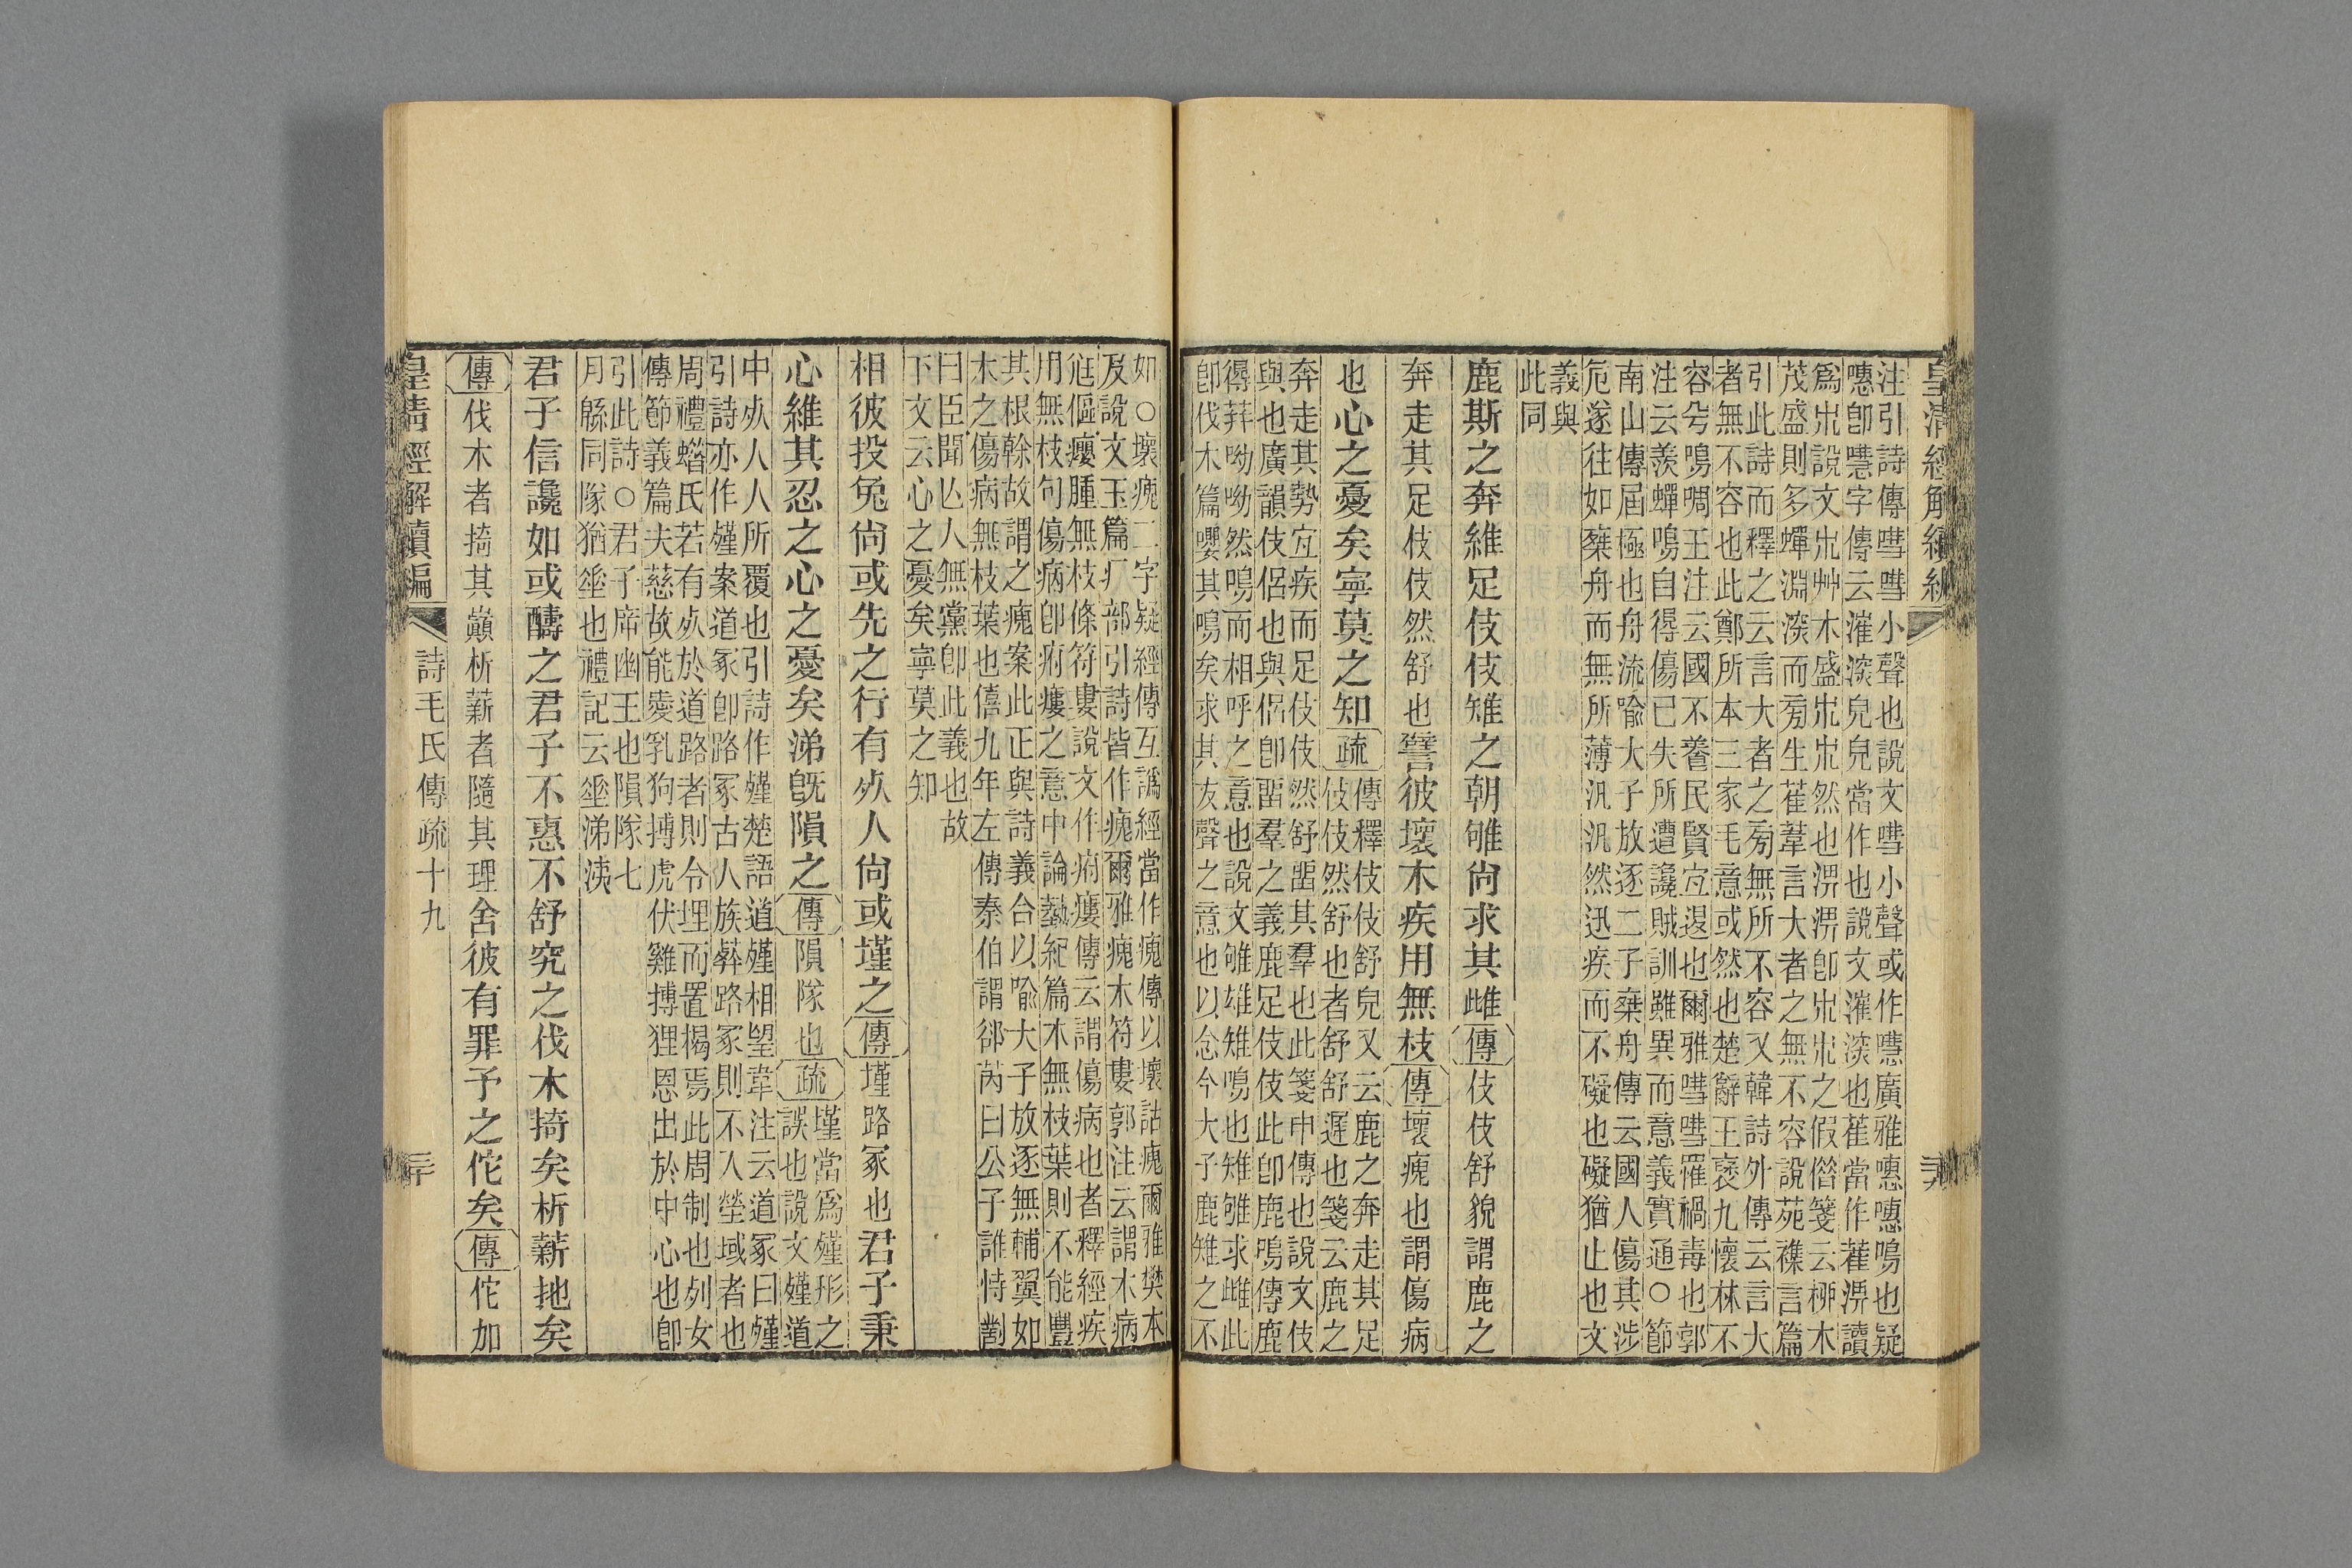 皇清經解續編
注引詩傳嘒嘒小聲也說文嘒小聲或作嚖廣雅嚖嚖鳴也疑
嚖卽嚖字傳云漼深皃皃當作也說文漼深也萑當作雚淠讀
爲㞕說文㞕艸木盛㞕㞕然也淠淠卽㞕㞕之假僣箋云桺木
茂盛則多蟬淵深而㫄生萑葦言大者之無不容說苑襍言篇
引此詩而釋之云言大者之㫄無所不容又韓詩外傳云言大
者無不容也此鄭所本三家毛意或然也楚辭王襃九懷林不
容兮鳴啁王注云國不養民賢宐退也爾雅嘒嘒罹禍毒也郭
注云羨蟬鳴自得傷已失所遭讒賊訓雖異而意義實通○節
南山傳屆極也舟流喩大子放逐二子棄舟傳云國人傷其涉
危遂往如棄舟而無所薄汎汎然迅疾而不礙也礙猶止也文
義與
此同
鹿斯之奔維足伎伎雉之朝雊尙求其雌傳伎伎舒貌謂鹿之
奔走其足伎伎然舒也譬彼壞木疾用無枝傳壞瘣也謂傷病
也心之憂矣寧莫之知疏傳釋伎伎舒皃又云鹿之奔走其足
伎伎然舒也者舒舒遲也箋云鹿之
奔走其勢宐疾而足伎伎然舒畱其羣也此箋申傳也說文伎
與也廣韻伎侶也與侶卽畱羣之義鹿足伎伎此卽鹿鳴傳鹿
得蓱呦呦然鳴而相呼之意也說文雊雄雉鳴也雉雊求雌此
卽伐木篇嚶其鳴矣求其友聲之意也以念今大子鹿雉之不
如○壞瘣二字疑經傳互譌經當作瘣傳以壞詁瘣爾雅樊本
及說文玉篇疒部引詩皆作瘣爾雅瘣木符婁郭注云謂木病
尩傴癭腫無枝條符婁說文作㾈瘻傳云謂傷病也者釋經疾
用無枝句傷病卽㾈瘻之意中論埶紀篇木無枝葉則不能豐
其根榦故謂之瘣案此正與詩義合以喩大子放逐無輔翼如
木之傷病無枝葉也僖九年左傳秦伯謂郤芮曰公子誰恃對
曰臣聞亾人無黨卽此義也故
下文云心之憂矣寧莫之知
相彼投兔尙或先之行有死人尙或墐之傳墐路冢也君子秉
心維其忍之心之憂矣涕旣隕之傳隕隊也疏墐當爲殣形之
誤也說文殣道
中死人人所覆也引詩作殣楚語道殣相朢韋注云道冢曰殣
引詩亦作殣案道冢卽路冢古人族葬路冢則不入塋域者也
周禮蜡氏若有死於道路者則令埋而置楬焉此周制也列女
傳節義篇夫慈故能愛乳狗搏虎伏雞搏狸恩出於中心也卽
引此詩○君子席幽王也隕隊七
月緜同隊猶坙也禮記云坙涕洟
君子信讒如或醻之君子不惠不舒究之伐木掎矣析薪扡矣
傳伐木者掎其巔析薪者隨其理舍彼有罪予之佗矣傳佗加
皇清經解續編
詩毛氏傳疏十九